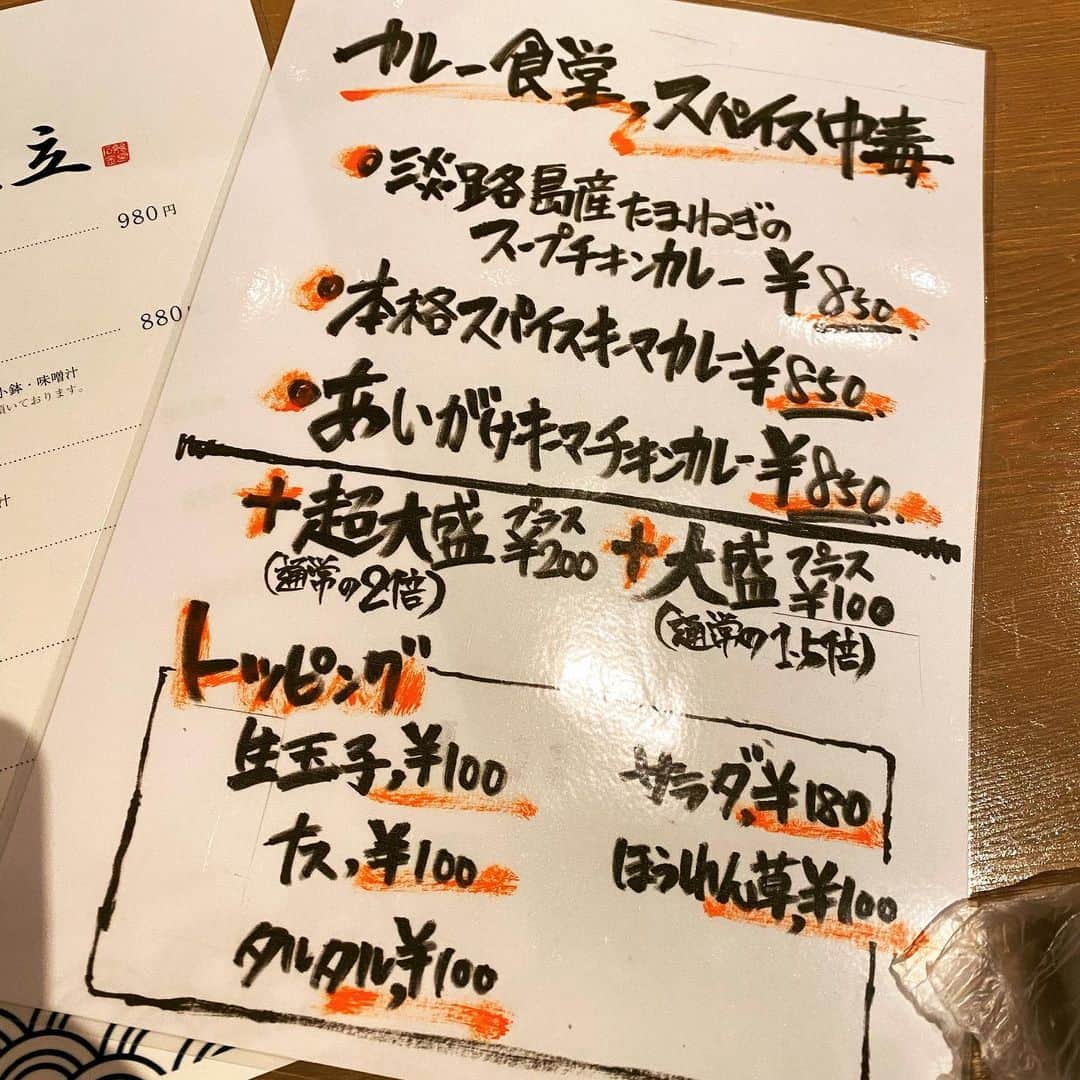 立
980円
880
小鉢・味噌汁
頂いております。
汁
カレー食堂,スパイス中毒
・淡路島産たまねぎの
スープチキンカレー ¥850
・本格スパイスキーマカレー ¥850
・あいがけキーマチキンカレー ¥850
+超大盛 プラス ¥200
(通常の2倍)
+大盛 プラス ¥100
(通常の1.5倍)
トッピング
生玉子,¥100
サラダ,¥180
ナス,¥100
ほうれん草,¥100
タルタル,¥100